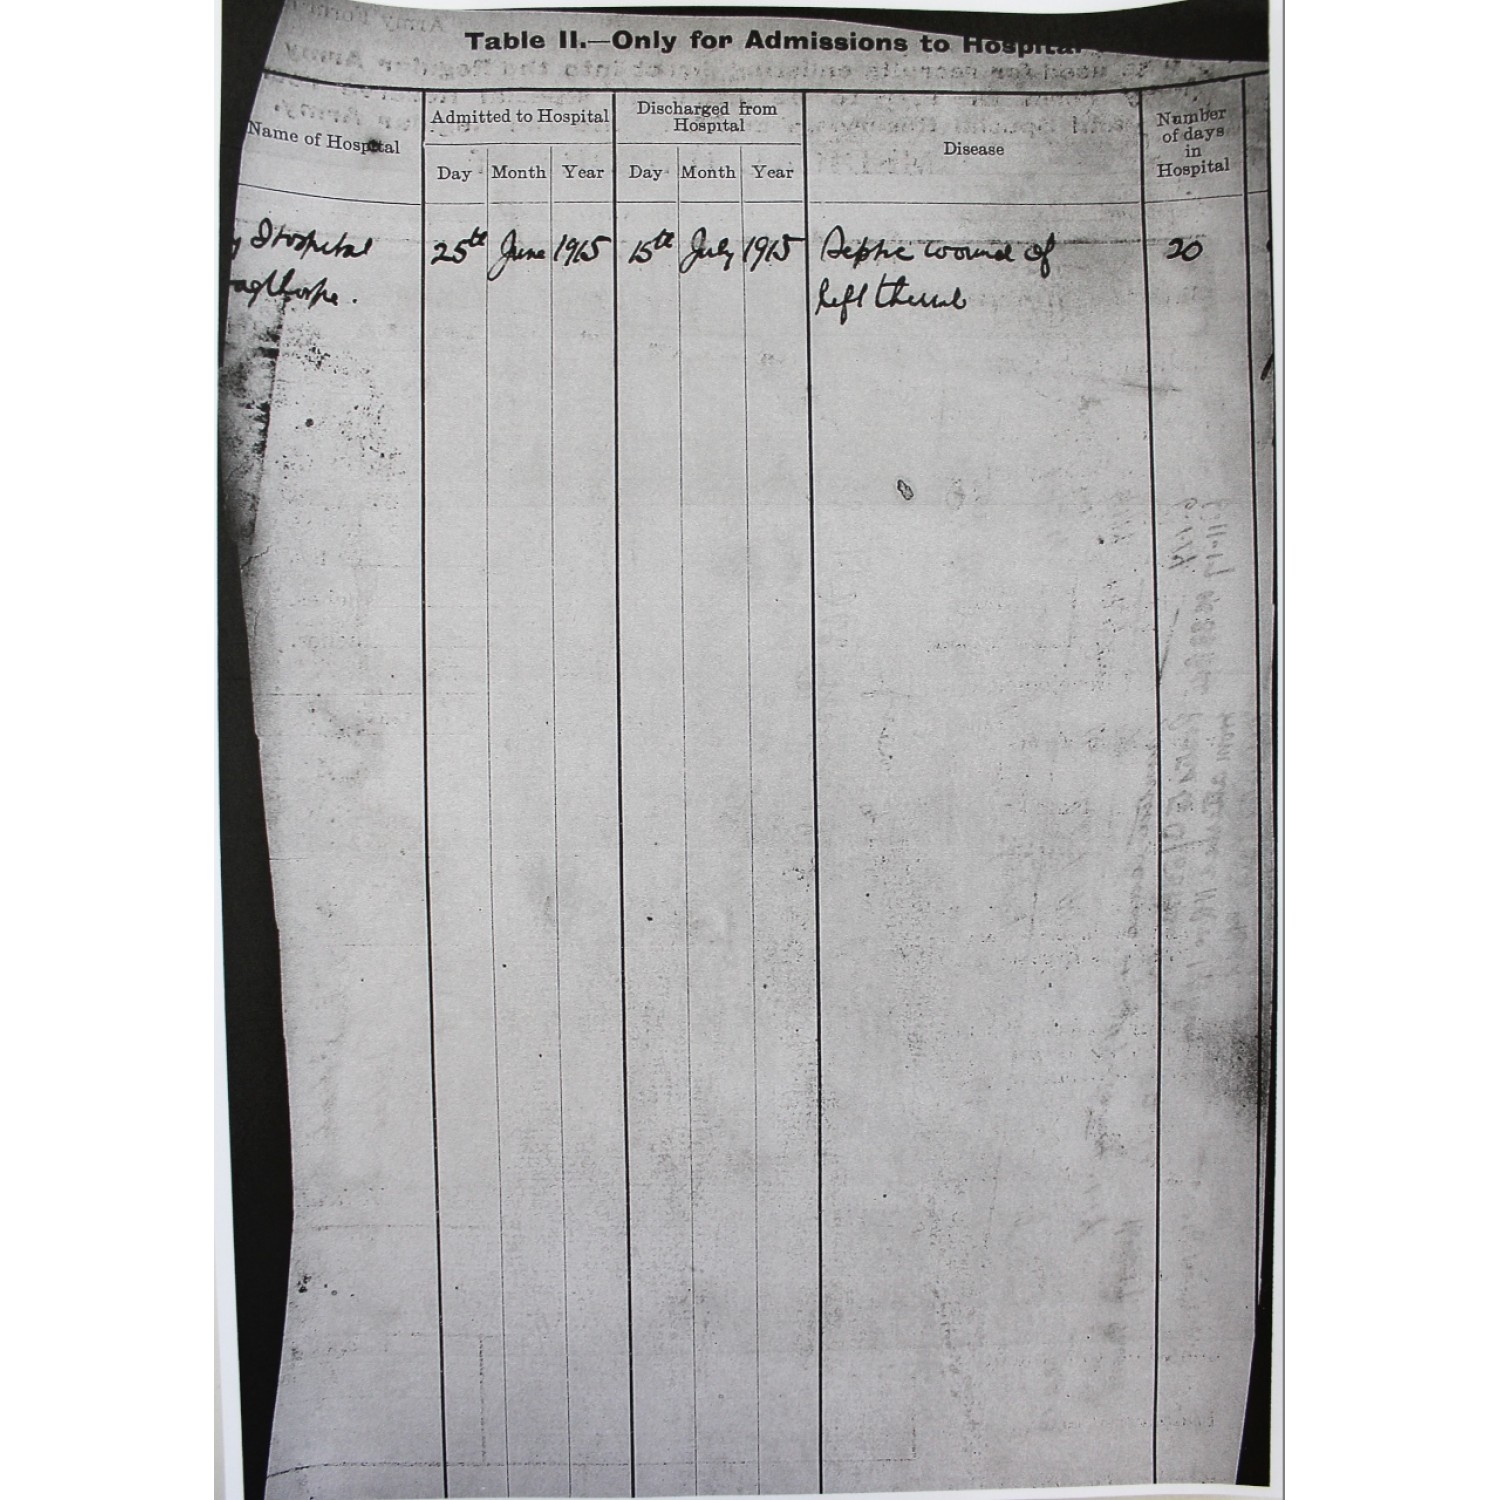 Table II.—Only for Admissions to Hospital
Name of Hospital
Admitted to Hospital
Discharged from
Hospital
Disease
Number
of days
in
Hospital
Day Month Year Day Month Year
y Hospital 25th June 1915 15th July 1915 Septic wound of 20
agthorpe. left thumb